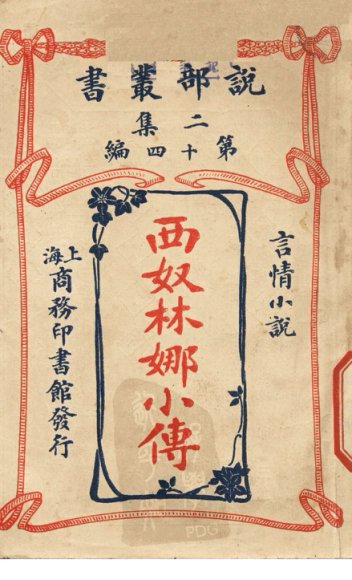 說部叢書
二集
第十四編
言情小說
西奴林娜小傳
上海商務印書館發行
PDG